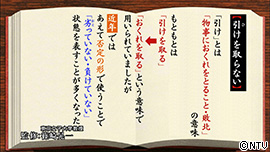 【引けを取らない】
「引け」とは
「物事におくれをとること・敗北」
の意味
もともとは
「引けを取る」
↓
「おくれを取る」という意味で
用いられていましたが
近年では
あえて否定の形で使うことで
「劣っていない・負けていない」
状態を表すことが多くなった
©NTV